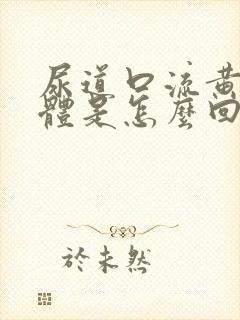 尿道口流黄
體是怎麽回
於未然